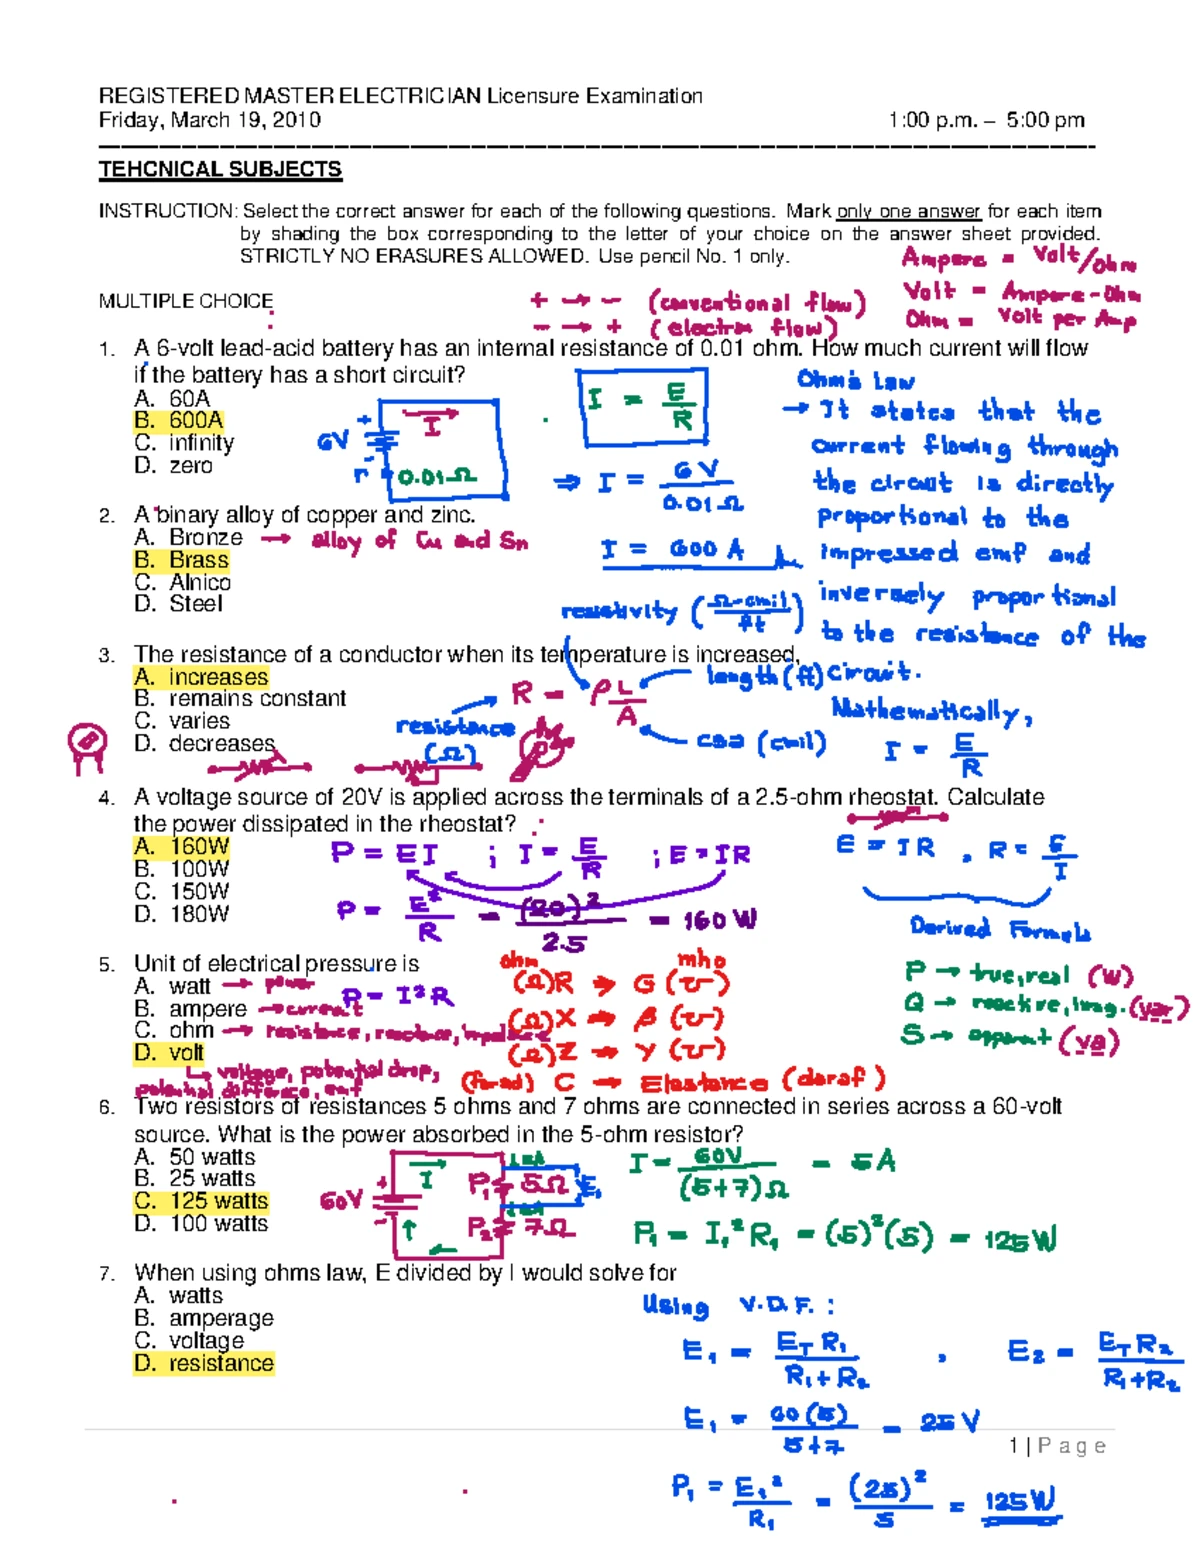 REGISTERED MASTER ELECTRICIAN Licensure Examination
Friday, March 19, 2010 1:00 p.m. – 5:00 pm
TEHCNICAL SUBJECTS
INSTRUCTION: Select the correct answer for each of the following questions. Mark only one answer for each item
by shading the box corresponding to the letter of your choice on the answer sheet provided.
STRICTLY NO ERASURES ALLOWED. Use pencil No. 1 only.
Ampere = Volt/Ohm
Volt = Ampere-Ohm
Ohm = Volt per Amp
MULTIPLE CHOICE
+ → − (conventional flow)
− → + (electron flow)
1. A 6-volt lead-acid battery has an internal resistance of 0.01 ohm. How much current will flow
if the battery has a short circuit?
A. 60A
B. 600A
C. infinity
D. zero
+ I
6V
− r 0.01Ω
I = E/R
⇒ I = 6V/0.01Ω
I = 600 A
Ohm's Law
→ It states that the
current flowing through
the circuit is directly
proportional to the
impressed emf and
inversely proportional
to the resistance of the
circuit.
Mathematically,
I = E/R
2. A binary alloy of copper and zinc.
A. Bronze → alloy of Cu and Sn
B. Brass
C. Alnico
D. Steel
3. The resistance of a conductor when its temperature is increased,
A. increases
B. remains constant
C. varies
D. decreases
resistivity (Ω-cmil/ft)
R = ρL/A
length (ft)
resistance (Ω)
csa (cmil)
4. A voltage source of 20V is applied across the terminals of a 2.5-ohm rheostat. Calculate
the power dissipated in the rheostat?
A. 160W
B. 100W
C. 150W
D. 180W
P = EI ; I = E/R ; E = IR
P = E²/R = (20)²/2.5 = 160 W
P = I²R
E = IR , R = E/I
Derived Formula
5. Unit of electrical pressure is
A. watt → power
B. ampere → current
C. ohm → resistance, reactance, impedance
D. volt
↳ voltage, potential drop,
potential difference, emf
ohm mho
(Ω)R → G (℧)
(Ω)X → β (℧)
(Ω)Z → Y (℧)
(farad) C → Elastance (daraf)
P → true, real (W)
Q → reactive, imag. (var)
S → apparent (va)
6. Two resistors of resistances 5 ohms and 7 ohms are connected in series across a 60-volt
source. What is the power absorbed in the 5-ohm resistor?
A. 50 watts
B. 25 watts
C. 125 watts
D. 100 watts
60V + − I
P₁ 5Ω E₁
P₂ 7Ω
I = 60V/(5+7)Ω = 5A
P₁ = I₁²R₁ = (5)²(5) = 125W
7. When using ohms law, E divided by I would solve for
A. watts
B. amperage
C. voltage
D. resistance
Using V.D.F. :
E₁ = ETR₁/R₁+R₂ , E₂ = ETR₂/R₁+R₂
E₁ = 60(5)/5+7 = 25V
P₁ = E₁²/R₁ = (25)²/5 = 125W
1 | Page